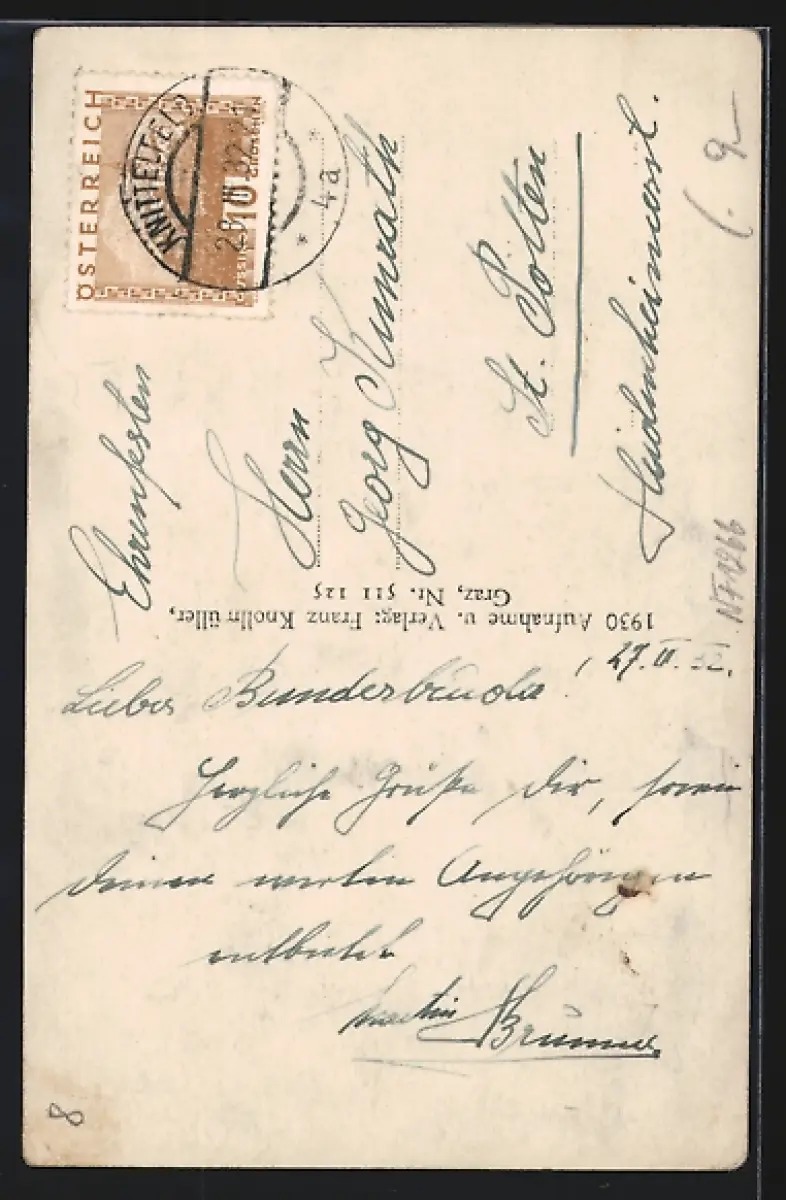 ÖSTERREICH
10 GROSCHEN
KNITTELFELD
28.III.32.21
* 4a *
Ehrenfesten
Herrn
Georg Kunrath
St. Pölten
1930 Aufnahme u. Verlag: Franz Knollmüller,
Graz, Nr. 511 125
27.III.32.
Lieber Bundesbruder!
Herzliche Grüße Dir, sowie
Deinen werten Angehörigen
entbietet
Martin Brunner
NF1266
8